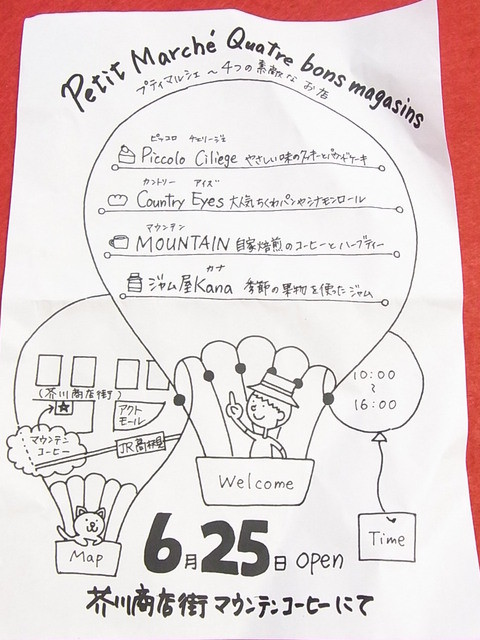 Petit Marché Quatre bons magasins
プティマルシェ ～ 4つの素敵なお店
ピッコロ チェリージェ
Piccolo Ciliege やさしい味のクッキーとパウンドケーキ
カントリー アイズ
Country Eyes 大人気ちくわパンやシナモンロール
マウンテン
MOUNTAIN 自家焙煎のコーヒーとハーブティー
カナ
ジャム屋Kana 季節の果物を使ったジャム
(芥川商店街)
アクト
モール
マウンテン
コーヒー
JR高槻
Map
Welcome
10:00
～
16:00
Time
6月25日 open
芥川商店街 マウンテンコーヒーにて